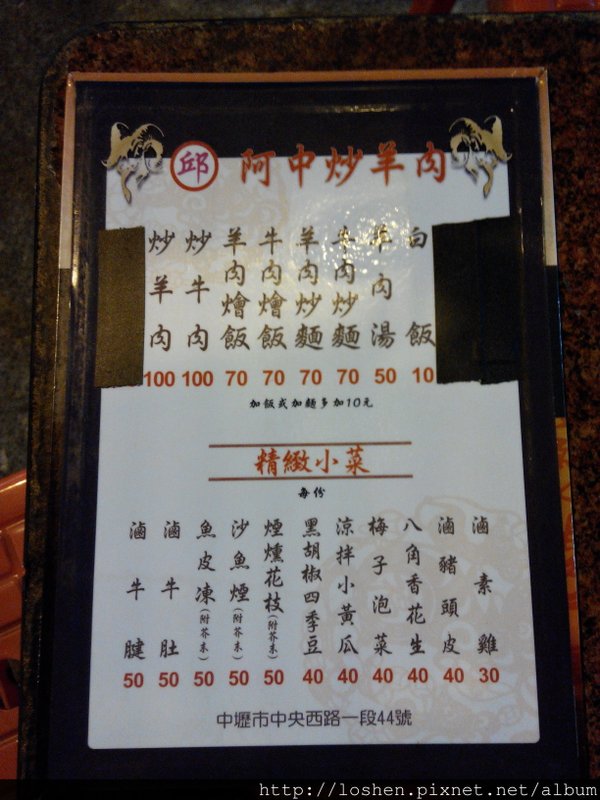 邱 阿中炒羊肉
炒羊肉 100
炒牛肉 100
羊肉燴飯 70
牛肉燴飯 70
羊肉炒麵 70
牛肉炒麵 70
羊肉湯 50
白飯 10
加飯或加麵多加10元
精緻小菜
每份
滷牛腱 50
滷牛肚 50
魚皮凍(附芥末) 50
沙魚煙(附芥末) 50
煙燻花枝(附芥末) 50
黑胡椒四季豆 40
涼拌小黃瓜 40
梅子泡菜 40
八角香花生 40
滷豬頭皮 40
滷素雞 30
中壢市中央西路一段44號
http://loshen.pixnet.net/album